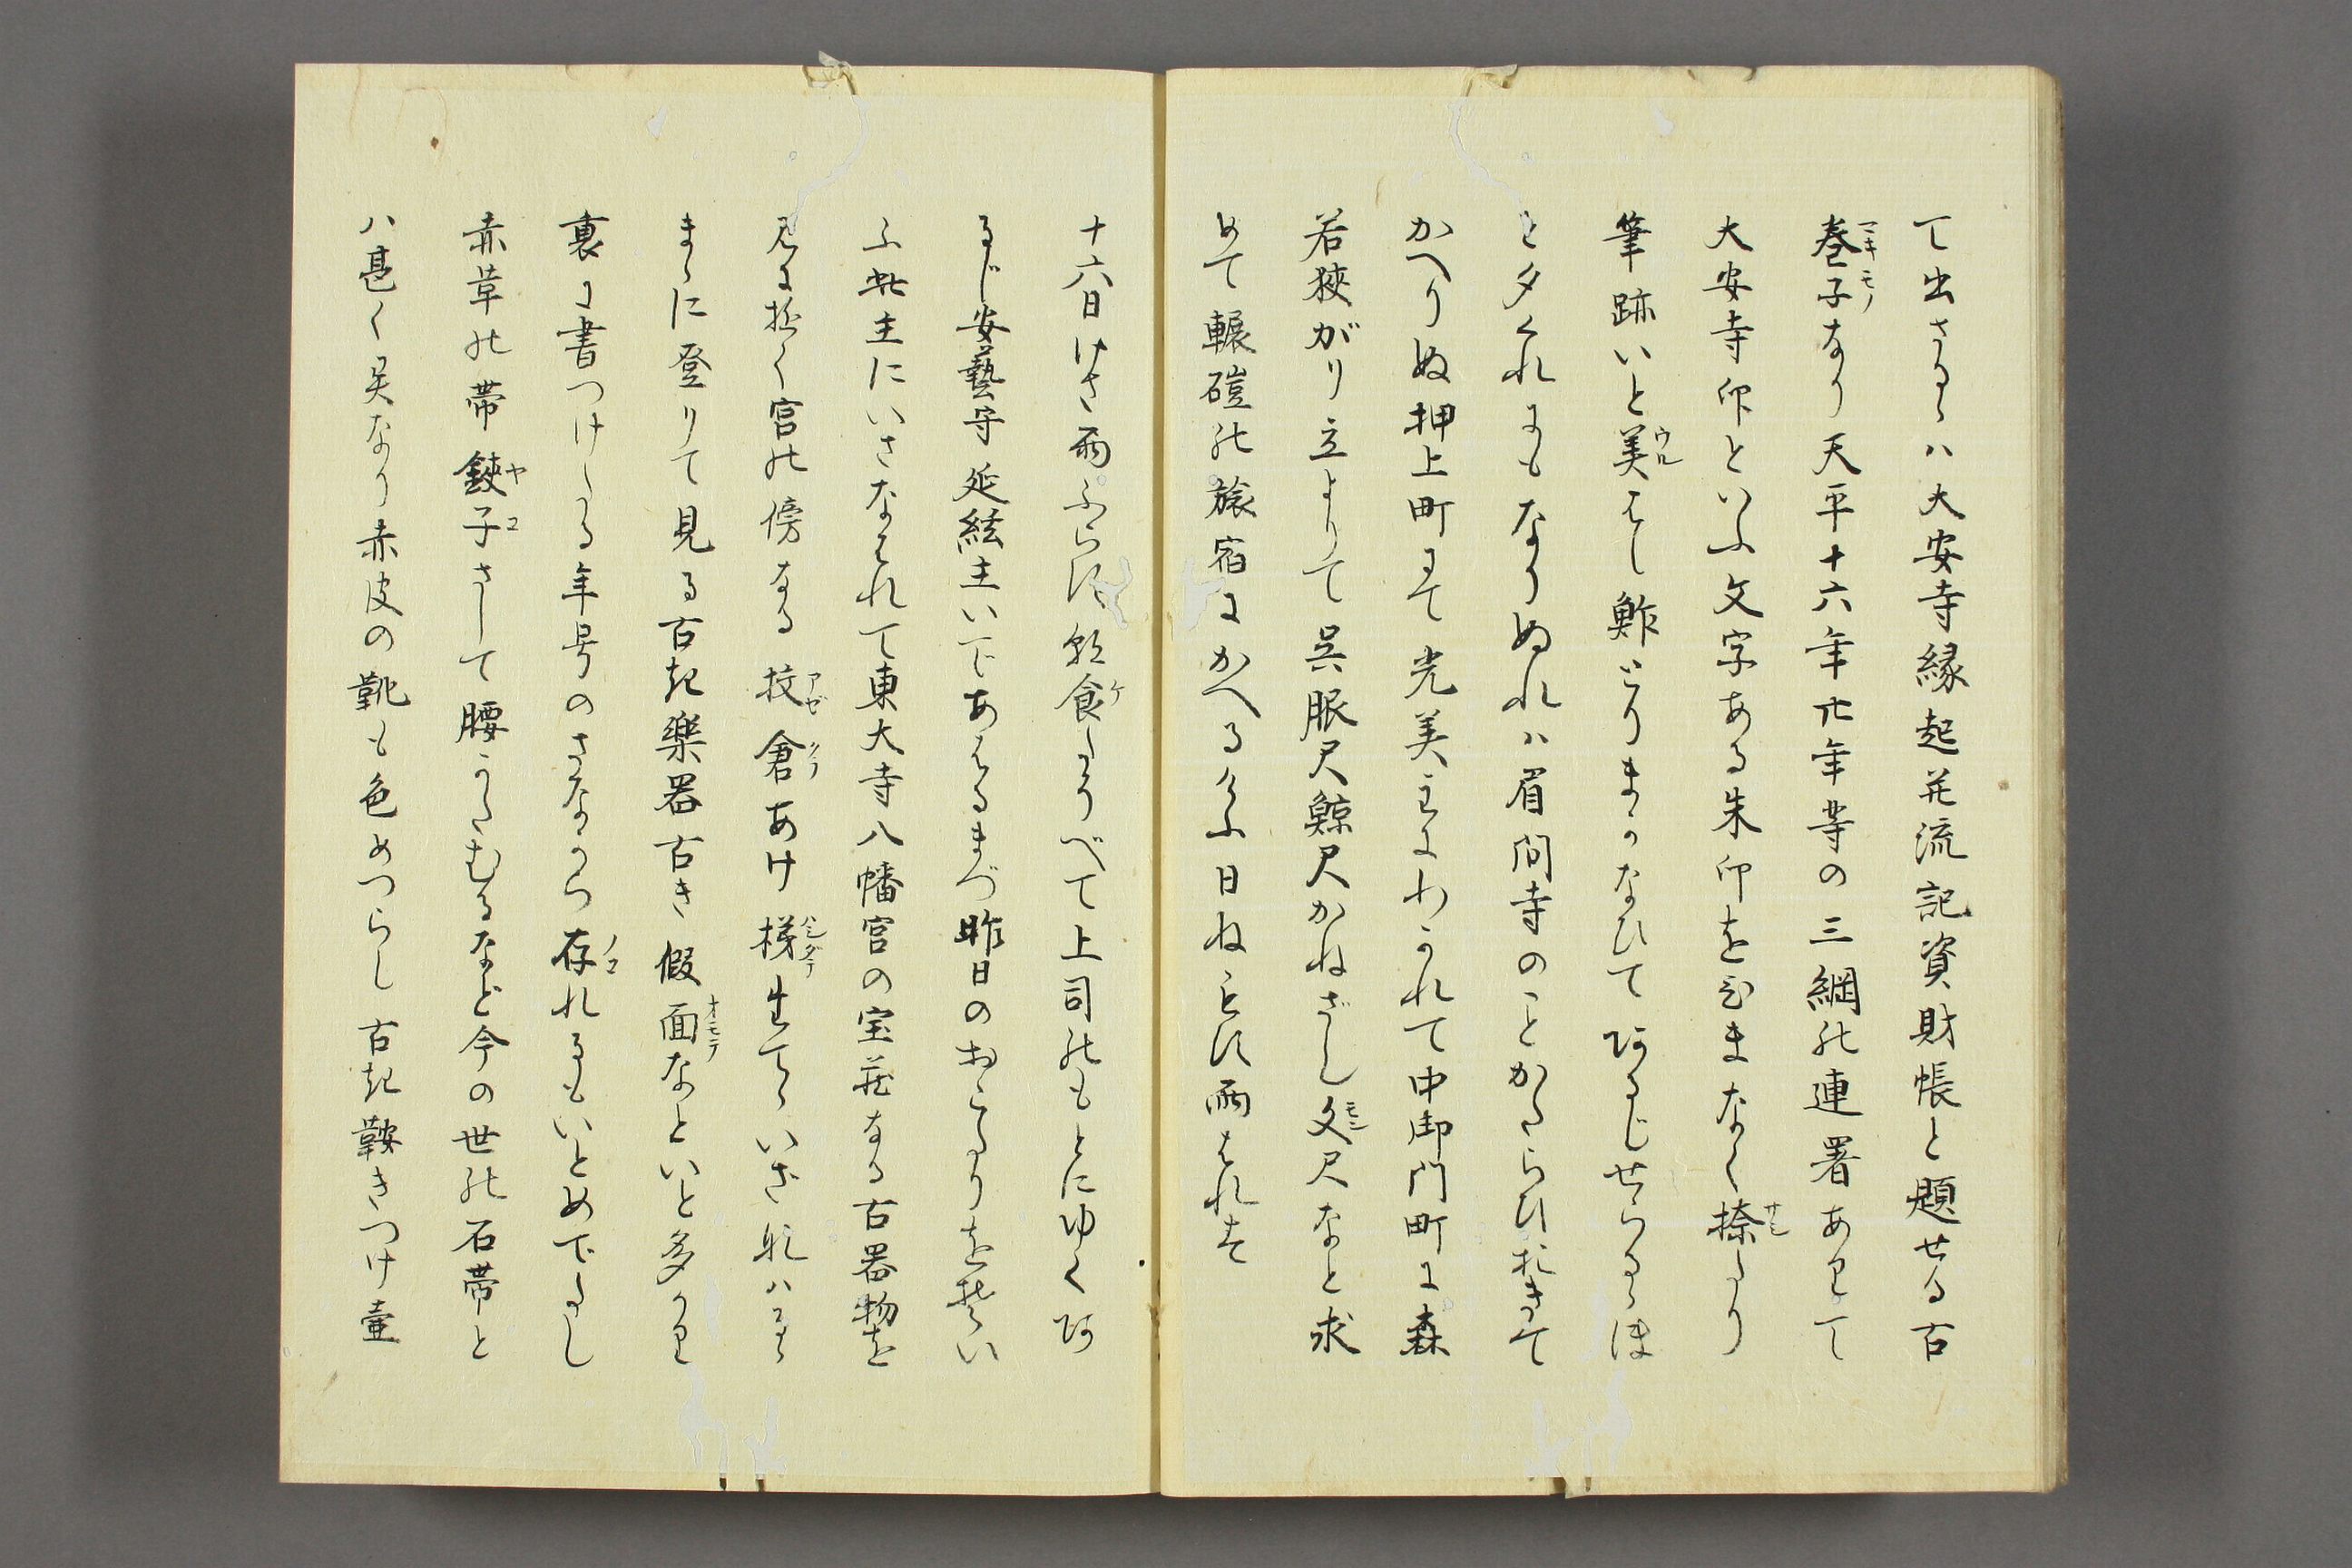 て出さるゝハ大安寺縁起并流記資財帳と題せる古
巻子なり天平十六年廿年等の三綱の連署ありて
大安寺印といふ文字ある朱印をひまなく捺したり
筆跡いと美はし鮓とりまかなひて阿るじせらるゝほ
と夕くれにもなりぬれハ眉間寺のことかたらひおきて
かへりぬ押上町にて光美主にわかれて中御門町に森
若狭がり立よりて呉服尺鯨尺かねざし文尺なと求
めて轆磑の旅宿にかへるけふ日ねもす雨はれす
十六日けさ雨ふらす朝食たうべて上司のもとにゆく阿
るじ安藝守延絃主いであはるまづ昨日のおこたりを挨い
ふ此主にいさなはれて東大寺八幡宮の宝蔵なる古器物を
見に近く宮の傍なる校倉あけ梯たてゝいざ先ハとて
まゝに登りて見る古き樂器古き假面なといと多かり
裏に書つけたる年号のさなから存れるもいとめでたし
赤革の帯鋏子さして腰うたむるなど今の世の石帯と
ハ甚く異なり赤皮の靴も色めつらし古き鞍きつけ壷